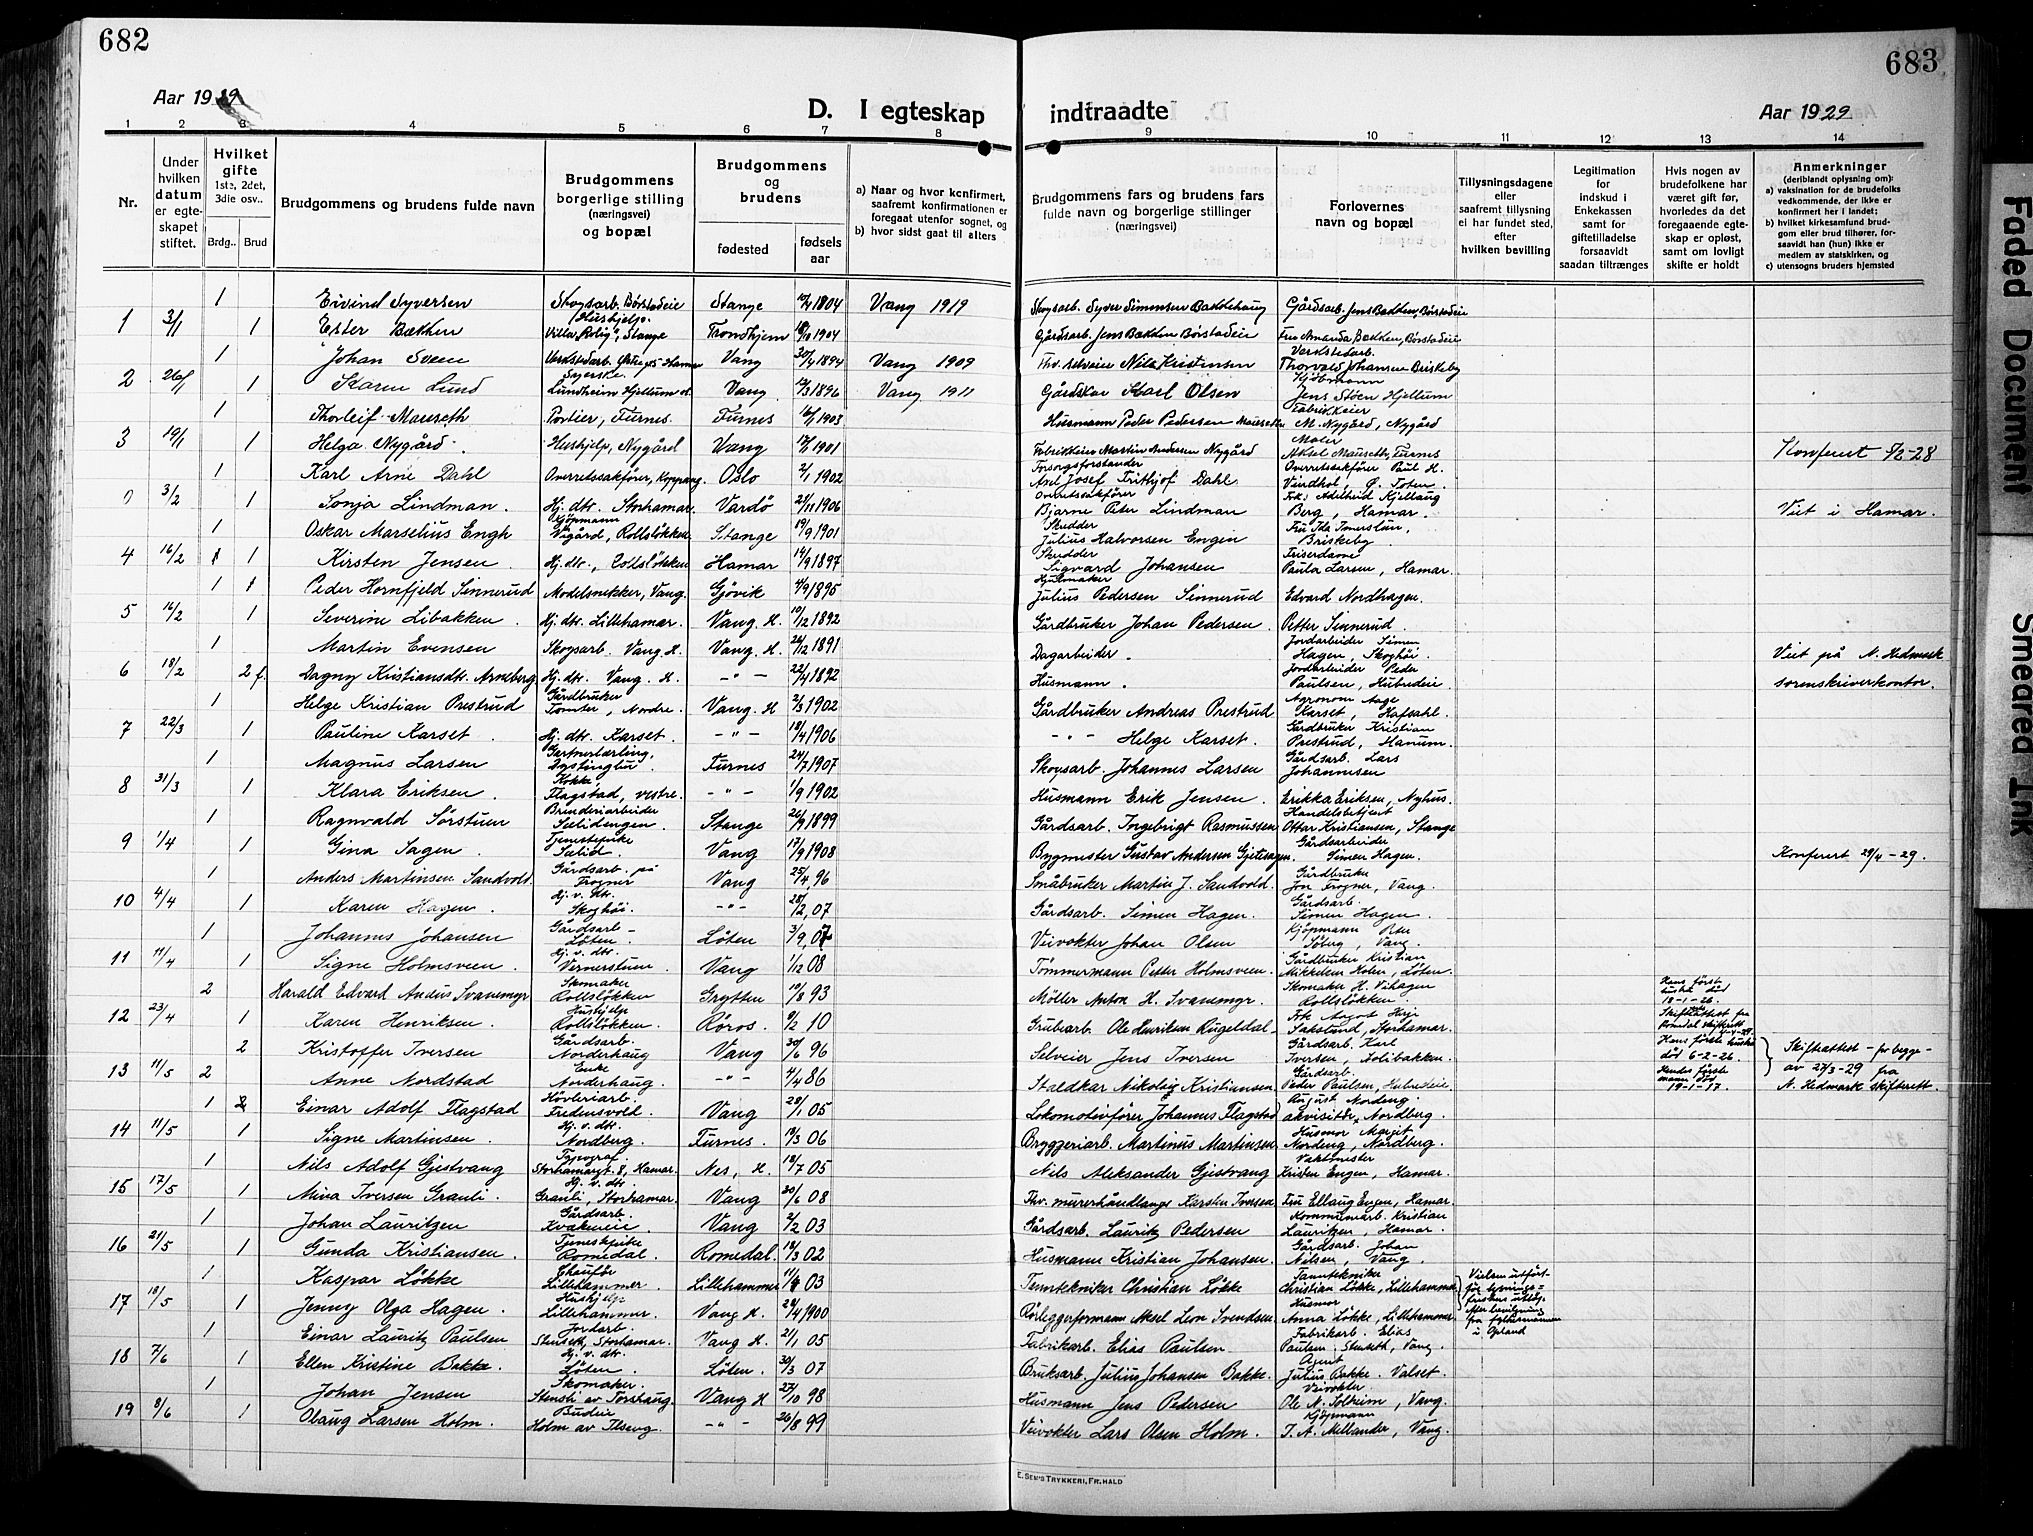 682
683
Aar 1929
D. I egteskap indtraadte
Aar 1929
1 2 3 4 5 6 7 8 9 10 11 12 13 14
Nr.
Under hvilken datum er egteskapet stiftet.
Hvilket gifte 1ste, 2det, 3die osv..
Brdg.. Brud
Brudgommens og brudens fulde navn
Brudgommens borgerlige stilling (næringsvei) og bopæl
Brudgommens og brudens
fødested
fødsels aar
a) Naar og hvor konfirmert, saafremt konfirmationen er foregaat utenfor sognet, og
b) hvor sidst gaat til alters
Brudgommens fars og brudens fars fulde navn og borgerlige stillinger (næringsvei)
Forlovernes navn og bopæl
Tillysningsdagene eller saafremt tillysning ei har fundet sted, efter hvilken bevilling
Legitimation for indskud i Enkekassen samt for giftetilladelse forsaavidt saadan tiltrænges
Hvis nogen av brudefolkene har været gift før, hvorledes da det foregaaende egteskap er opløst, samt om lovligt skifte er holdt
Anmerkninger (deriblandt oplysning om):
a) vaksination for de brudefolks vedkommende, der ikke er konfirmert her i landet;
b) hvilket kirkesamfund brudgom eller brud tilhører, forsaavidt han (hun) ikke er medlem av statskirken, og
c) utensogns bruders hjemsted
1 Eivind Syversen Skogsarb. Børstadeie Stange 1804 Vang 1919 Skogsarb. Syver Simensen Bakkehaug Gårdsarb. Jens Bakken, Børstadeie
1 3/1 1 Ester Bakken Hushjelp. Villa "Rolig", Stange Trondhjem 1904 Gårdsarb. Jens Bakken Børstadeie Fru Amanda Bakken, Børstadeie
1 Johan Sveen Vang 1894 Vang 1909 Nils Kristinsen Verkstedarb. Thorvald Johansen Briskeby
2 26/1 1 Karen Lund Syerske. Lundheim Hjellum st. Vang 1896 Vang 1911 Gårdskar Karl Olsen Kjøbmann Jens Støen Hjellum
1 Thorleif Mauseth Portier, Furnes Furnes 16/1 1903 Husmann Peder Pedersen Mauseth Fabrikkeier M. Nygård, Nygård
3 19/1 1 Helga Nygård Hushjelp, Nygård Vang 1901 Fabrikkeier Martin Andersen Nygård Maler Aksel Mauseth, Furnes Konferert 5/2-28
1 Karl Arne Dahl Overretssakfører, Koppang. Oslo 2/1 1902 Forsorgsforstander Axel Josef Frithjof Dahl Overretssakfører Paul H. Vindhol, Ø. Toten
0 3/2 1 Sonja Lindman. Hj. dtr. Storhamar. Vardø 21/11 1906 Overretssakfører Bjarne Peter Lindman Frk. Adelheid Kjellaug Berg, Hamar. Viet i Hamar.
1 Oskar Marselius Engh Kjøpmann Vigård, Rollsløkken Stange 19/9 1901 Skredder Julius Halvorsen Engen Fru Ida Imerslun, Briskeby
4 16/2 1 Kirsten Jensen. Hj. dtr., Rollsløkken Hamar 14/9 1897 Skredder Sigvard Johansen Friserdame Paula Larsen, Hamar.
1 Peder Hornfjeld Sinnerud Modelsnekker, Vang. Gjøvik 4/9 1895 Hjulmaker Julius Pedersen Sinnerud Edvard Nordhagen.
5 16/2 1 Severine Libakken. Hj. dtr. Lillehamar. Vang. H. 10/12 1892 Gårdbruker Johan Pedersen. Petter Sinnerud.
1 Martin Evensen Skogsarb. Vang. H. Vang. H. 26/12 1891 Dagarbeider. Jordarbeider Simen Hagen, Skoghøi. Viet på N. Hedmark
6 18/2 2 f. Dagny Kristiansdtr. Arneberg Hj. dtr. Vang. H. - " - 22/4 1892 Husmann. Jordarbeider Peder Paulsen, Hubredeie sorenskriverkontor.
1 Helge Kristian Prestrud Gårdbruker Tomter, Nordre. Vang. H 2/3 1902 Gårdbruker Andreas Prestrud Agronom Aage Karset, Hafsahl.
7 22/3 1 Pauline Karset. Hj. dtr. Karset. - " - 18/4 1906 - " - Helge Karset. Gårdbruker Kristian Prestrud, Hanum.
1 Magnus Larsen Gartnerlærling, Dystingbu. Furnes 24/7 1907 Skogsarb. Johannes Larsen Gårdsarb. Lars Johannesen
8 31/3 1 Klara Eriksen. Kokke Flagstad, vestre. - " - 1/9 1902 Husmann Erik Jensen. Erikka Eriksen, Nyhus.
1 Ragnvald Sørstuen Brenderiarbeider Sælidengen. Stange 26/9 1899 Gårdsarb. Ingebrigt Rasmussen Handelsbetjent Ottar Kristiansen, Stange
9 1/4 1 Gina Sagen. Tjenestepike Sælid. Vang 17/9 1908 Bygmester Gustav Andersen Gjetesagen. Gårdsarbeider Simen Hagen. Konferert 29/4-29.
1 Anders Martinsen Sandvold. Gårdsarb. på Frogner Vang 25/4, 96 Småbruker Martin J. Sandvold. Gårdbruker Jon Frogner, Vang.
10 4/4 1 Karen Hagen. Hj. v. dtr. Skoghøi. - " - 28/2, 07 Gårdsarb. Simen Hagen. Gårdsarb. Simen Hagen.
1 Johannes Johansen Gårdsarb. Løten. Løten 3/9, 07 Veivokter Johan Olsen Kjøpmann Peter Søberg, Vang.
11 11/4 1 Signe Holmsveen. Hj. v. dtr. Vernerstuen. Vang 1/12 08 Tømmermann Petter Holmsveen. Gårdbruker Kristian Mikkelsen Holen, Løten.
2 Harald Edvard Andus Svanemyr Skomaker Rollsløkken Grytten 10/8 93 Møller Anton H. Svanemyr. Skomaker H. Vihagen Rollsløkken. Hans første hustru død 18-1-26.
12 23/4 1 Karen Henriksen. Hushjelp Rollsløkken. Røros. 9/2 10 Grubearb. Ole Henriksen Rugeldal. Frk. Aagot Hirje Sakslund, Storhamar. Skifteattest fra Romedal skifterett
2 Kristoffer Iversen Gårdsarb. Norderhaug Vang 30/6 96 Selveier Jens Iversen Gårdsarb. Karl Iversen, Solibakken. Hans første hustru død 6-2-26. Skifteattest - for begge -
13 11/5 2 Anne Nordstad Enke Norderhaug. - " - 4/4 86 Staldkar Nikolai Kristiansen Gårdsarb. Peder Paulsen, Hubredeie Hendes første mann død 19-1-17. av 27/3-29 fra N. Hedmark skifterett.
1 Einar Adolf Flagstad Høvleriarb. Fredensvold. Vang 28/1, 05 Lokomotivfører Johannes Flagstad August Nordeng akvisitør, Nordberg.
14 11/5 1 Signe Martinsen. Hj. v. dtr. Nordberg. Furnes. 18/3 06 Bryggeriarb. Martinus Martinsen Husmor Margit Nordeng, Nordberg.
1 Nils Adolf Gjestvang Typograf Storhamargt. 8, Hamar. Nes, H. 18/7 05 Nils Aleksander Gjestvang Vaktmester Kristen Engen, Hamar.
15 17/5 1 Mina Iversen Granli. Hj. v. dtr. Granli, Storhamar. Vang 30/6 08 Fhv. murerhåndlanger Karsten Iversen Fru Ellaug Engen, Hamar.
1 Johan Lauritzen Gårdsarb. Kvakeneie. Vang 2/2 03 Gårdsarb. Lauritz Pedersen Kommunearb. Kristian Lauritzen, Hamar.
16 21/5 1 Gunda Kristiansen. Tjenestepike Romedal. Romedal. 18/3 02 Husmann Kristian Johansen. Gårdsarb. Johan Nilsen, Vang.
1 Kaspar Løkke Chauffør Lillehammer. Lillehammer 11/8 03 Tenntekniker Christian Løkke Tanntekniker Christian Løkke, Lillehammer
17 18/5 1 Jenny Olga Hagen. Hushjelp Lillehammer. Vang H. 29/4 1900 Rørleggerformann Aksel Leon Svendsen. Husmor Anna Løkke, Lillehammer
1 Einar Lauritz Paulsen Jordarb. Stenseth, Storhamar. Vang H. 2/1 05 Fabrikarb. Elias Paulsen. Fabrikarb. Elias Paulsen. Stenseth, Vang.
18 7/6 1 Ellen Kristine Bakke. Hj. v. dtr. Løten. Løten. 30/3 07 Bruksarb. Julius Johansen Bakke. Agent Julius Bakke. Valset.
1 Johan Jensen Skomaker. Stensli av Torshaug. Vang H 27/10 98 Husmann Jens Pedersen Veivokter Ole N. Solheim, Vang.
19 8/6 1 Olaug Larsen Holm. Budeie Holm av Ilseng. - " - 26/8 99 Veivokter Lars Olsen Holm. Kjøpmann J. A. Mellander, Vang.
E. SEM'S TRYKKERI, FR.HALD
Faded Document
Smeared Ink